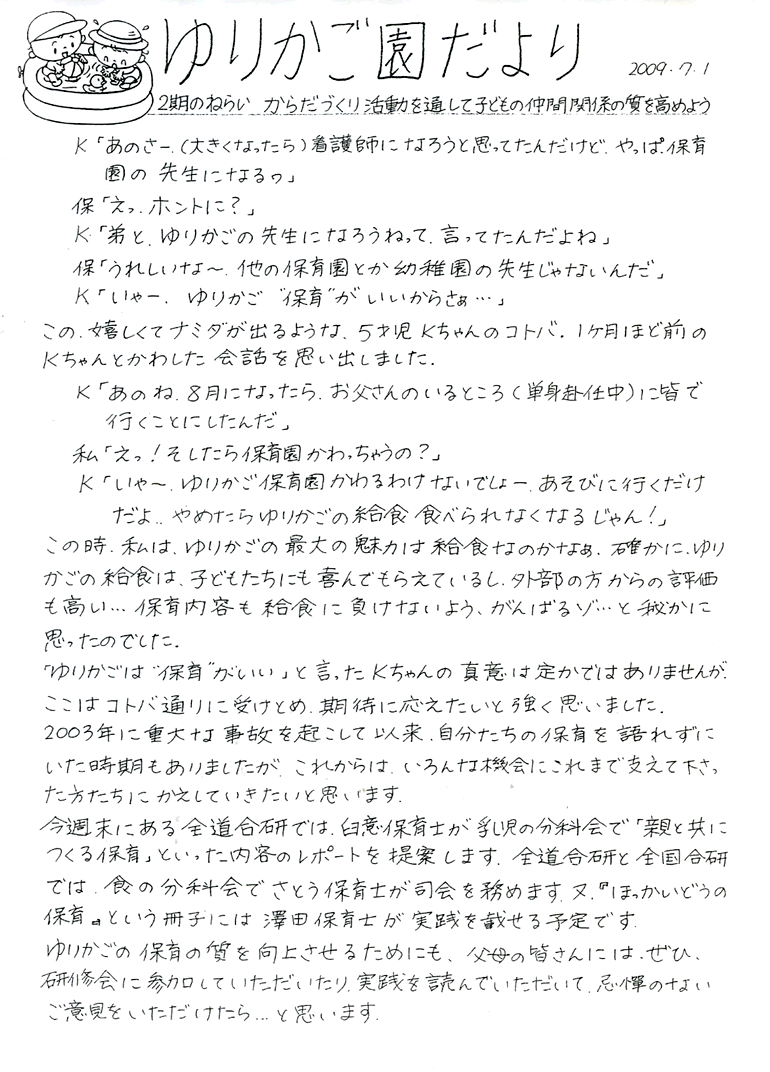 ゆりかご園だより
2009.7.1
2期のねらい からだづくり活動を通して子どもの仲間関係の質を高めよう
K「あのさー、(大きくなったら)看護師になろうと思ってたんだけど、やっぱ、保育
園の先生になるゥ」
保「えっ、ホントに?」
K「弟と、ゆりかごの先生になろうねって、言ってたんだよね」
保「うれしいな〜、他の保育園とか幼稚園の先生じゃないんだ」
K「いやー、ゆりかご“保育”がいいからさぁ…」
この、嬉しくてナミダが出るような、5才児Kちゃんのコトバ。1ヶ月ほど前の
Kちゃんとかわした会話を思い出しました。
K「あのね、8月になったら、お父さんのいるところ(単身赴任中)に皆で
行くことにしたんだ」
私「えっ!そしたら保育園かわっちゃうの?」
K「いや〜、ゆりかご保育園かわるわけないでしょー、あそびに行くだけ
だよ.. やめたらゆりかごの給食食べられなくなるじゃん!」
この時、私は、ゆりかごの最大の魅力は給食なのかなぁ、確かに、ゆり
かごの給食は、子どもたちにも喜んでもらえているし、外部の方からの評価
も高い…保育内容も給食に負けないよう、がんばるゾ…と秘かに
思ったのでした。
「ゆりかごは“保育”がいい」と言ったKちゃんの真意は定かではありませんが、
ここはコトバ通りに受けとめ、期待に応えたいと強く思いました。
2003年に重大な事故を起こして以来、自分たちの保育を語れずに
いた時期もありましたが、これからは、いろんな機会にこれまで支えて下さっ
た方たちにかえしていきたいと思います。
今週末にある全道合研では、臼意保育士が乳児の分科会で「親と共に
つくる保育」といった内容のレポートを提案します。全道合研と全国合研
では、食の分科会でさとう保育士が司会を務めます。又、『ほっかいどうの
保育』という冊子には澤田保育士が実践を載せる予定です。
ゆりかごの保育の質を向上させるためにも、父母の皆さんには、ぜひ、
研修会に参加していただいたり、実践を読んでいただいて、忌憚のない
ご意見をいただけたら…と思います。